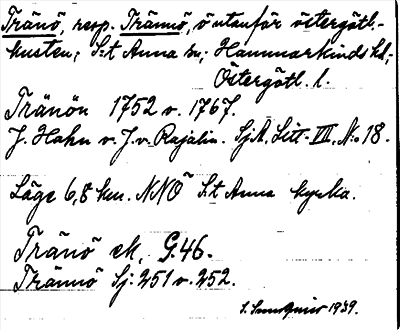 Tränö, resp. Trännö, ö utanför östergötl.-
kusten; S:t Anna sn; Hammarkinds hd;
Östergötl. l.
Tränön 1752 o. 1767.
J. Hahn o. J. v. Rajalin. SjA, Litt. III, N:o 18.
Läge 6,8 km. NNÖ S:t Anna kyrka.
Tränö ek. G.46.
Trännö Sj: 251 o. 252.
1939.